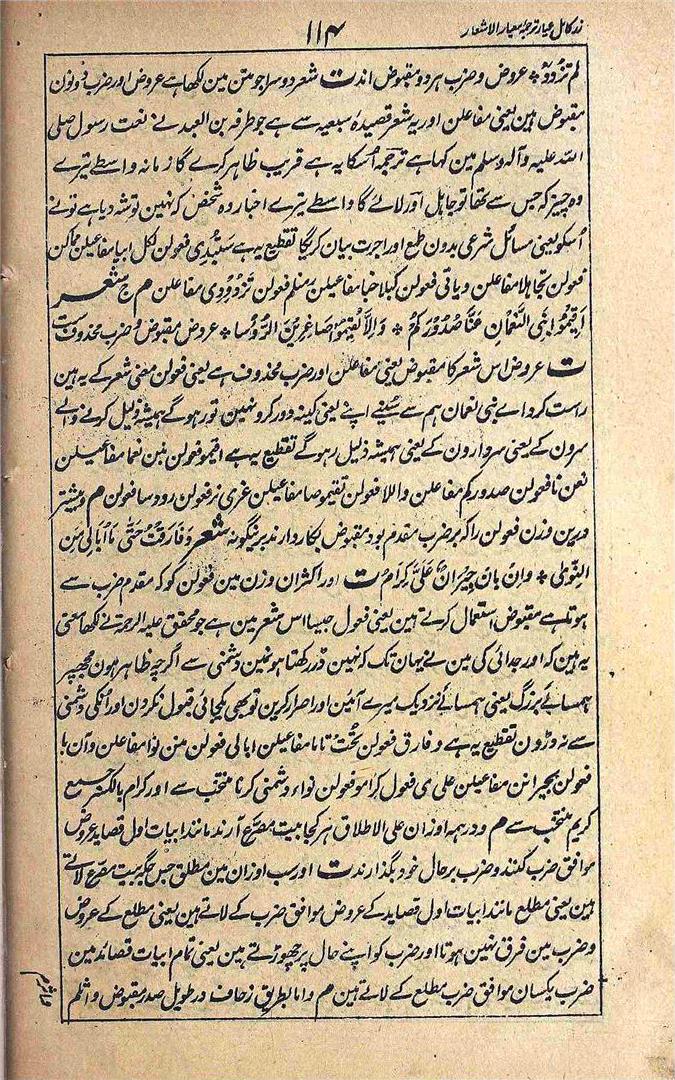 زر کامل عیار ترجمہ معیار الاشعار
۱۱۴
لم تزود * عروض و ضرب ہر دو مقبوض اند ت شعر دوسرا جو متن مین لکھا ہے عروض اور ضرب دونون
مقبوض ہین یعنی مفاعلن اور یہ شعر قصیدہ سبعیہ سے ہے جو طرفہ بن العبد نے نعت رسول صلی
اللہ علیہ وآلہ وسلم مین کہا ہے ترجمہ اُسکا یہ ہے قریب ظاہر کرے گا زمانہ واسطے تیرے
وہ چیز کہ جس سے تھا تو جاہل اور لائے گا واسطے تیرے اخبار وہ شخص کہ نہین توشہ دیا ہے تونے
اُسکو یعنی مسائل شرعی بدون طمع اور اجرت بیان کریگا تقطیع یہ ہے ستبدی فعولن لکل ایا مفاعیلن مماکن
فعولن تجاہلا مفاعلن ویاتی فعولن کبلا خبا مفاعیلن رمنلم فعولن تزوودی مفاعلن م ج شعر
اَقِیمُوا بَنِی النُّعْمَانِ عَنَّا صُدُورَکُم * وَاِلَّا تُقِیمُوا صَاغِرِینَ الرُّؤُسَا * عروض مقبوض و ضرب محذوف ست
ت عروض اس شعر کا مقبوض یعنی مفاعلن اور ضرب محذوف ہے یعنی فعولن معنی شعر کے یہ ہین
راست کرو اے بنی نعمان ہم سے سینے اپنے یعنی کینہ دور کرو نہین تو رہوگے ہمیشہ ذلیل کرنے والے
سرون کے یعنی سردارون کے یعنی ہمیشہ ذلیل رہوگے تقطیع یہ ہے اقیمو فعولن بنن نعما مفاعیلن
نعن نا فعولن صدورکم مفاعلن والا فعولن تقیمو صا مفاعیلن غری نر فعولن رودسا فعولن م و بیشتر
درین وزن فعولن را کہ بر ضرب مقدم بود مقبوض بکار دارند برینگونہ شعر وَفَارَقْتُ حَتّٰی مَا اُبَالِی مَنِ
النَّوٰی * وَاِنْ بَانَ جِیْرَانٌ عَلَیَّ کِرَامٌ ت اور اکثر ان وزن مین فعولن کو کہ مقدم ضرب سے
ہوتا ہے مقبوض استعمال کرتے ہین یعنی فعول جیسا اس شعر مین ہے جو محقق علیہ الرحمۃ نے لکھا معنی
یہ ہین کہ اور جدائی کی مین نے یہان تک کہ نہین ڈر رکھتا ہون مین دشمنی سے اگرچہ ظاہر ہون مجھپر
ہمسائے بزرگ یعنی ہمسائے نزدیک میرے آئین اور اصرار کرین تو بھی یکجائی قبول نکرون اور اُنکی دشمنی
سے نہ ڈرون تقطیع یہ ہے وفارق فعولن تحت تا ما مفاعیلن ابالی فعولن منن نوا مفاعلن وآن با
فعولن نجیرانن مفاعیلن علی ی فعول کرامو فعولن نواء دشمنی کرنا منتخب سے اور کرام بالکسر جمع
کریم منتخب سے م و در ہمہ اوزان علی الاطلاق ہر کجا بیت مصرع آرند مانند ابیات اول قصاید عروض
موافق ضرب کنند و ضرب بر حال خود بگذارند ت اور سب اوزان مین مطلق جس جگہ بیت مصرع لاتے
ہین یعنی مطلع مانند ابیات اول قصاید کے عروض موافق ضرب کے لاتے ہین یعنی مطلع کے عروض
و ضرب مین فرق نہین ہوتا اور ضرب کو اپنے حال پر چھوڑتے ہین یعنی تمام ابیات قصائد مین
ضرب یکسان موافق ضرب مطلع کے لاتے ہین م و اما بطریق زحاف در طویل صدر مقبوض و اثلم